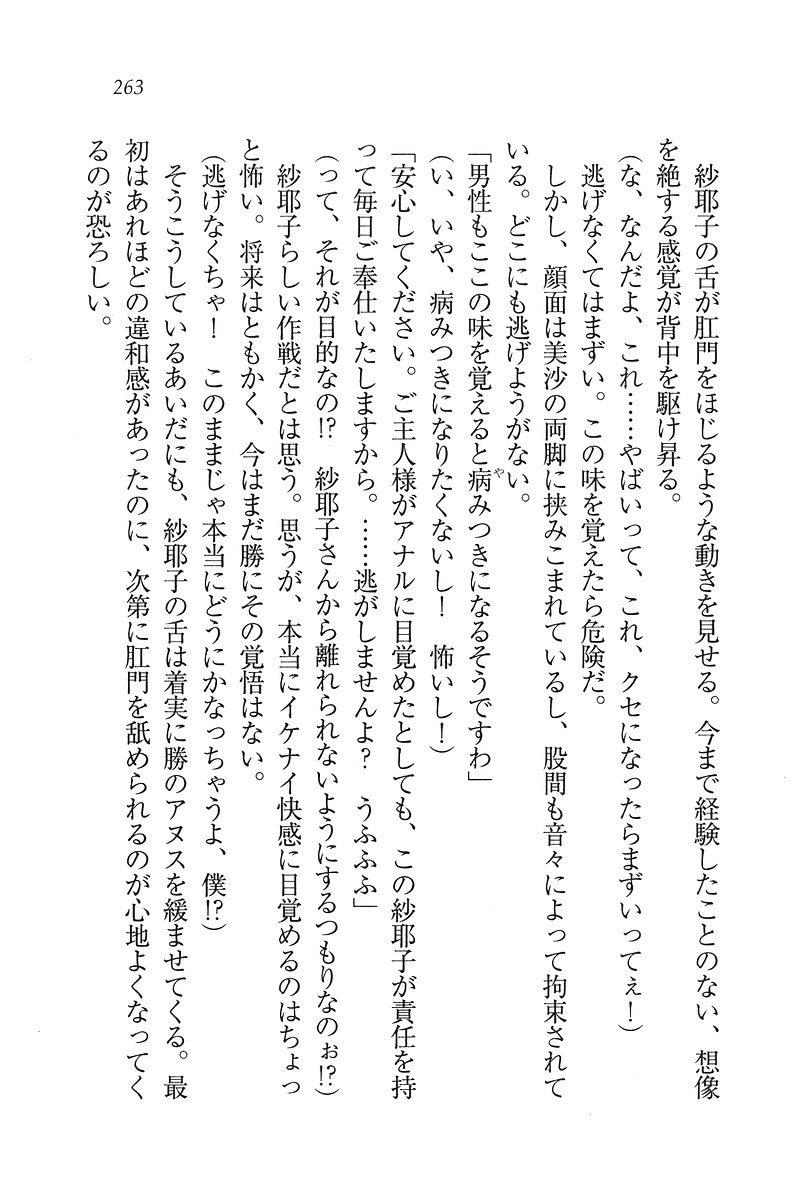 263
紗耶子の舌が肛門をほじるような動きを見せる。今まで経験したことのない、想像
を絶する感覚が背中を駆け昇る。
（な、なんだよ、これ……やばいって、これ、クセになったらまずいってぇ！）
逃げなくてはまずい。この味を覚えたら危険だ。
しかし、顔面は美沙の両脚に挟みこまれているし、股間も音々によって拘束されて
いる。どこにも逃げようがない。
「男性もここの味を覚えると病みつきになるそうですわ」
（い、いや、病みつきになりたくないし！　怖いし！）
「安心してください。ご主人様がアナルに目覚めたとしても、この紗耶子が責任を持
って毎日ご奉仕いたしますから。……逃がしませんよ？　うふふふ」
（って、それが目的なの!?　紗耶子さんから離れられないようにするつもりなのぉ!?）
紗耶子らしい作戦だとは思う。思うが、本当にイケナイ快感に目覚めるのはちょっ
と怖い。将来はともかく、今はまだ勝にその覚悟はない。
（逃げなくちゃ！　このままじゃ本当にどうにかなっちゃうよ、僕!?）
そうこうしているあいだにも、紗耶子の舌は着実に勝のアヌスを緩ませてくる。最
初はあれほどの違和感があったのに、次第に肛門を舐められるのが心地よくなってく
るのが恐ろしい。